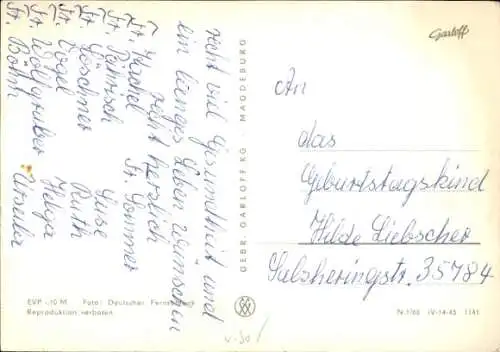 recht viel Gesundheit und
ein langes Leben wünschen
recht herzlich
Fr. Hachel Fr. Sommer
Fr. Dittrisch
Fr. Löschner Luise
Fr. Vogel Ruth
Fr. Wolfgruber Helga
Fr. Böhm Ursula
GEBR. GARLOFF KG · MAGDEBURG
Garloff
An
das
Geburtstagskind
Hilde Liebscher
Salzheringstr. 35784
EVP -,10 M Foto: Deutscher Fernsehfunk
Reproduktion verboten
N 1/68 IV-14-45 1141